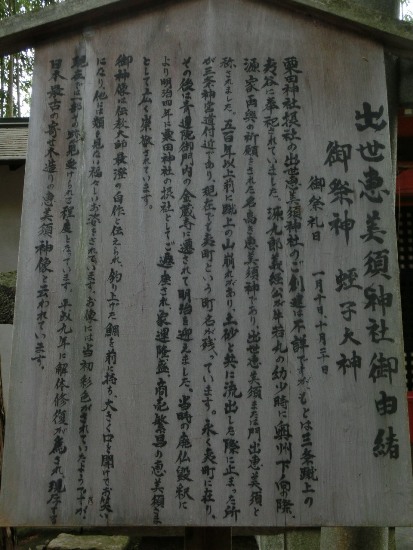 出世恵美須神社御由緒
御祭神　蛭子大神
御祭礼日　一月十日、十月二十日
粟田神社摂社の出世恵美須神社のご創建は不詳ですが、もとは三条蹴上の
夷谷に奉祀されていました。源九郎義経公が牛若丸の幼少時に奥州下向の際、
源家再興の祈願とされた名高き恵美須神であり、出世恵美須または門出恵美須と
称されました。五百年以上前に蹴上の山崩れがあり、土砂と共に流出した際に止まった所
が三条神宮道付近であり、現在でも夷町という町名が残っています。永く夷町に在り、
その後は青蓮院御門内の金蔵寺に遷されて明治を迎えました。当時の廃仏毀釈に
より明治四年に粟田神社の摂社としてご遷座され、家運隆盛、商売繁昌の恵美須さま
として広く崇敬されています。
御神像は伝教大師最澄の自作と伝えられ、釣り上げた鯛を前に抱き、大きく口を開けてお笑い
になり、他には類を見ない福々しいお姿をされています。お像には当初彩色がされていたようですが、
現在では一部その跡が見受けられる程度となっています。平成九年に解体修復が為され、現存する
日本最古の寄せ木造りの恵美須神像と云われています。